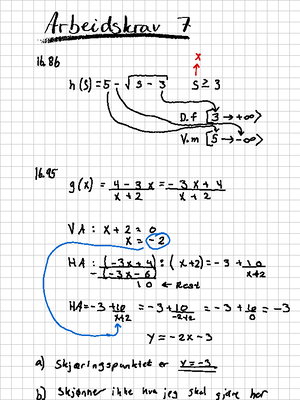 Arbeidskrav 7
16.86
x
h(s) = 5 - √(s - 3)   s ≥ 3
D.f [3 → +∞⟩
V.m [5 → -∞⟩
16.95
g(x) = (4 - 3x)/(x + 2) = (-3x + 4)/(x + 2)
VA: x + 2 = 0
x = -2
HA: (-3x + 4) : (x + 2) = -3 + 10/(x+2)
-(-3x - 6)
10 ← Rest
HA = -3 + 10/(x+2) = -3 + 10/(-2+2) = -3 + 10/0 = -3
y = -2x - 3
a) Skjæringspunktet er y = -3
b) Skjønner ikke hva jeg skal gjøre her